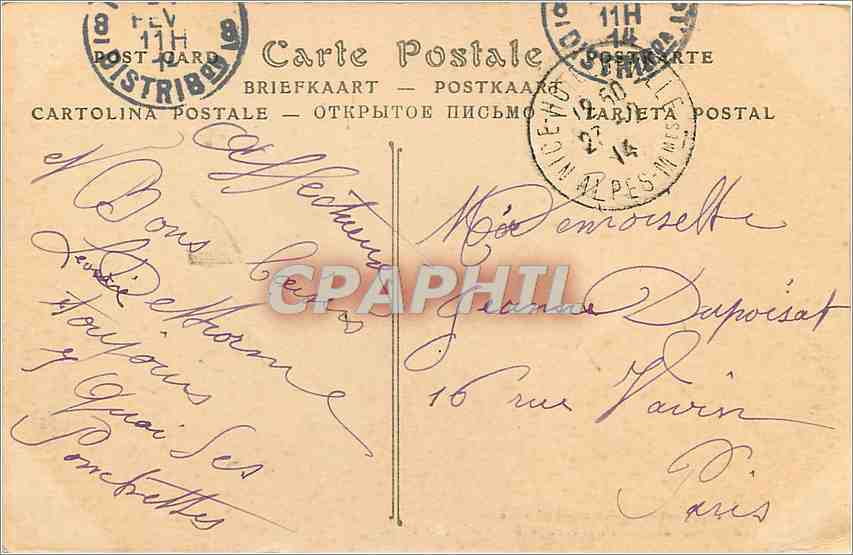 8 FEV 8
11H
DISTRIBON
11H
14
DISTRIBON
POST CARD Carte Postale POSTKARTE
BRIEFKAART — POSTKAART
CARTOLINA POSTALE — ОТКРЫТОЕ ПИСЬМО — TARJETA POSTAL
NICE
14
ALPES-MMES
Affectueux
et Bons baisers
Dethorme
toujours
7 Quai des
Ponchettes
CPAPHIL
Mademoiselle
Jeanne Dupoisat
16 rue Vavin
Paris